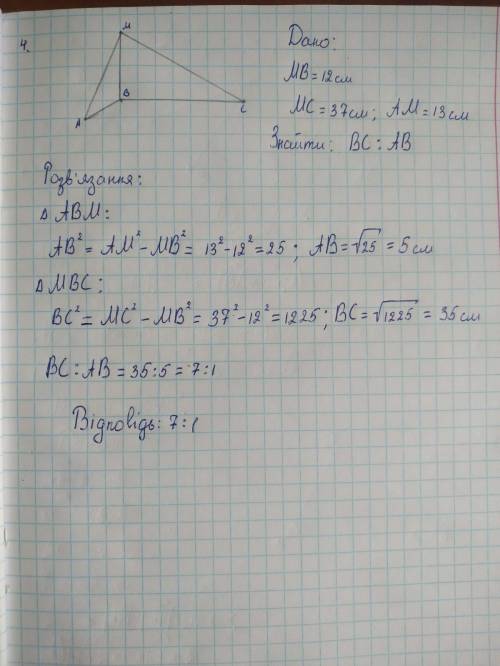 4.
M
B
A
C
Дано:
MB=12см
MC=37см; AM=13см
Знайти: BC:AB
Розв'язання:
△ ABM:
AB²= AM²-MB²= 13²-12²=25; AB=√25 = 5см
△ MBC:
BC²= MC²-MB²= 37²-12²=1225; BC=√1225 = 35см
BC:AB=35:5=7:1
Відповідь: 7:1